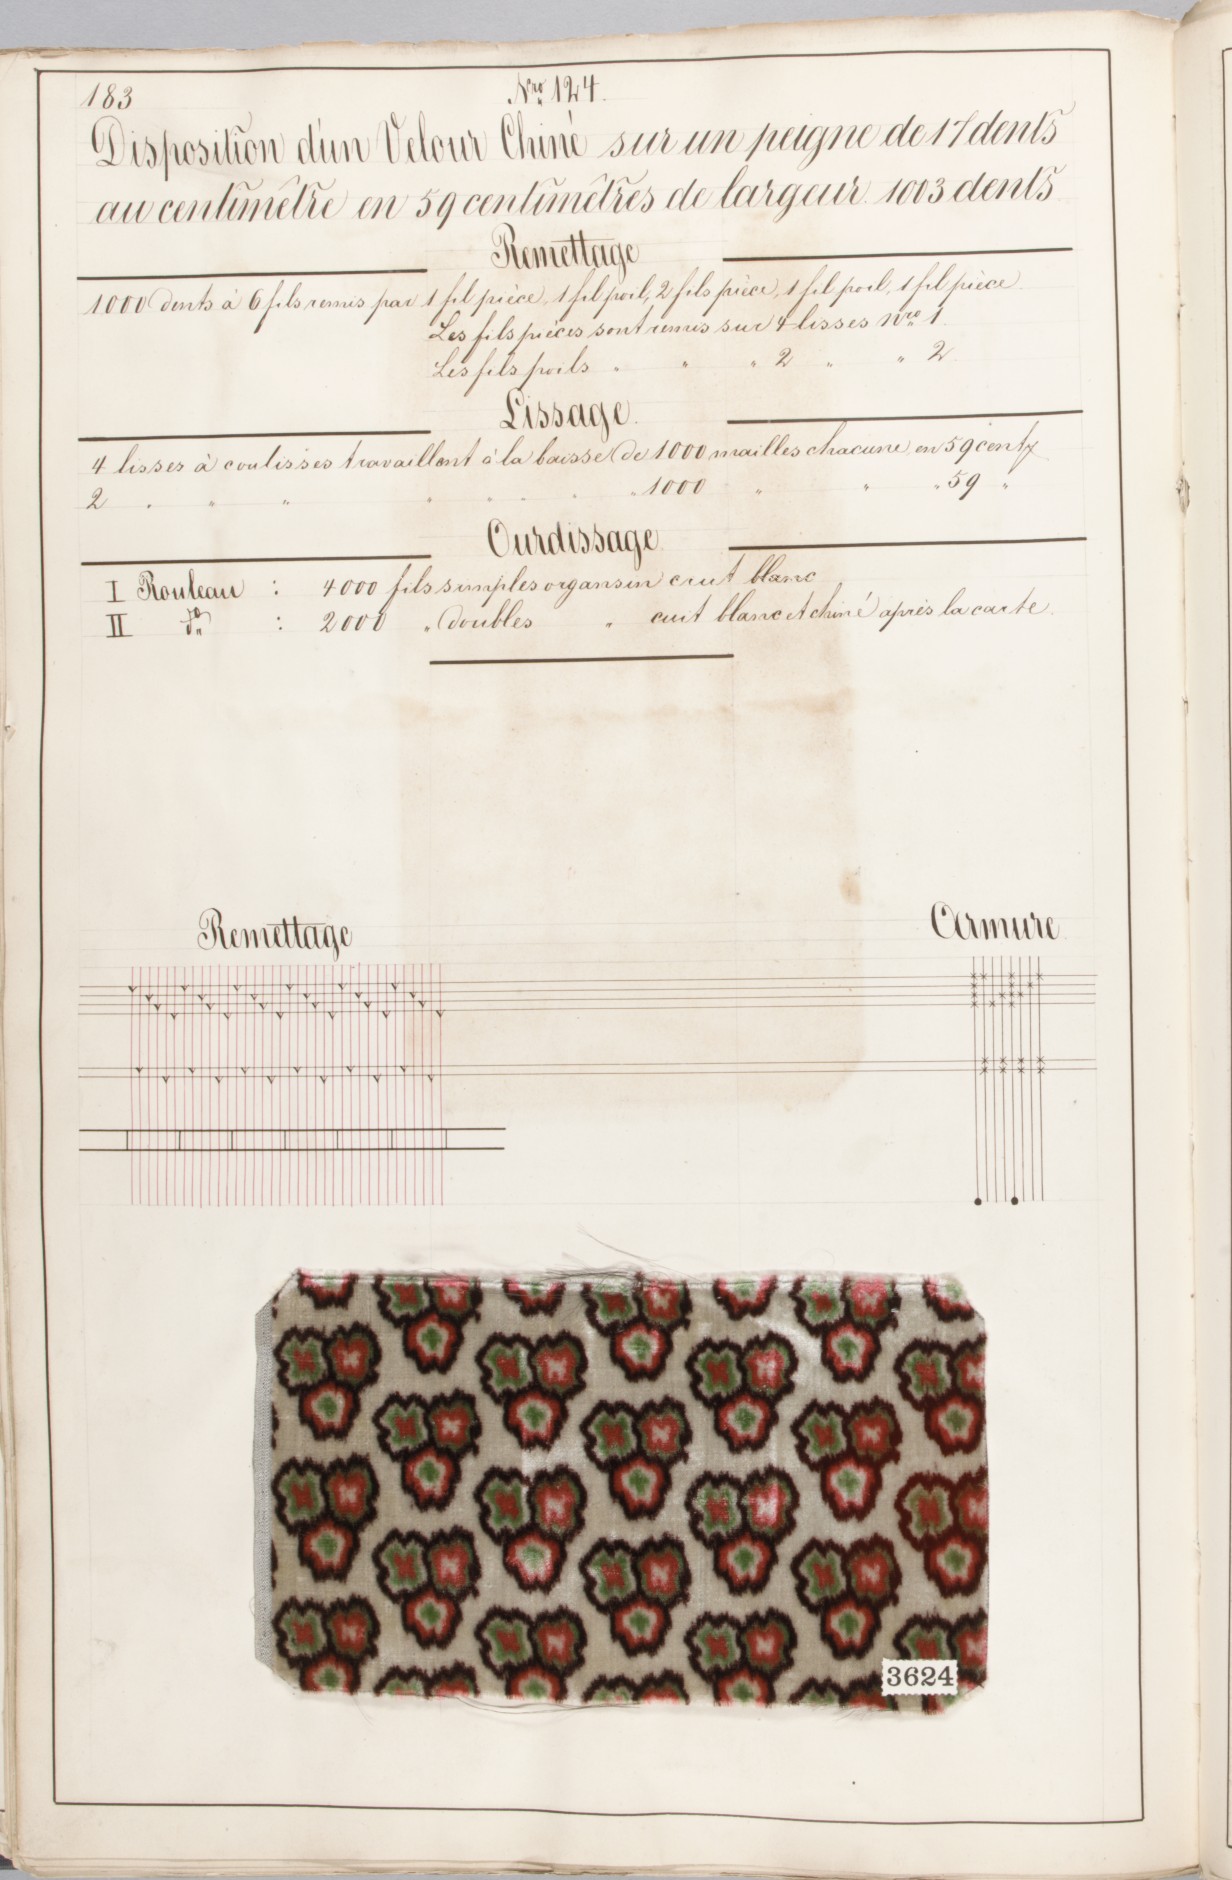 183
Nro 124.
Disposition d'un Velour Chiné sur un peigne de 17 dents
au centimêtre en 59 centimêtres de largeur 1003 dents
Remettage
1000 dents à 6 fils remis par 1 fil pièce, 1 fil poil, 2 fils pièce, 1 fil poil, 1 fil pièce.
Les fils pièces sont remis sur 4 lisses Nro 1.
Les fils poils " " " 2 " " 2.
Lissage.
4 lisses à coulisses travaillant à la baisse de 1000 mailles chacune en 59 cent
2 " " " " " " " " 1000 " " " 59 "
Ourdissage
I Rouleau : 4000 fils simples organsin cuit blanc
II do : 2000 " doubles " cuit blanc et chiné après la carte.
Remettage
Armure
3624